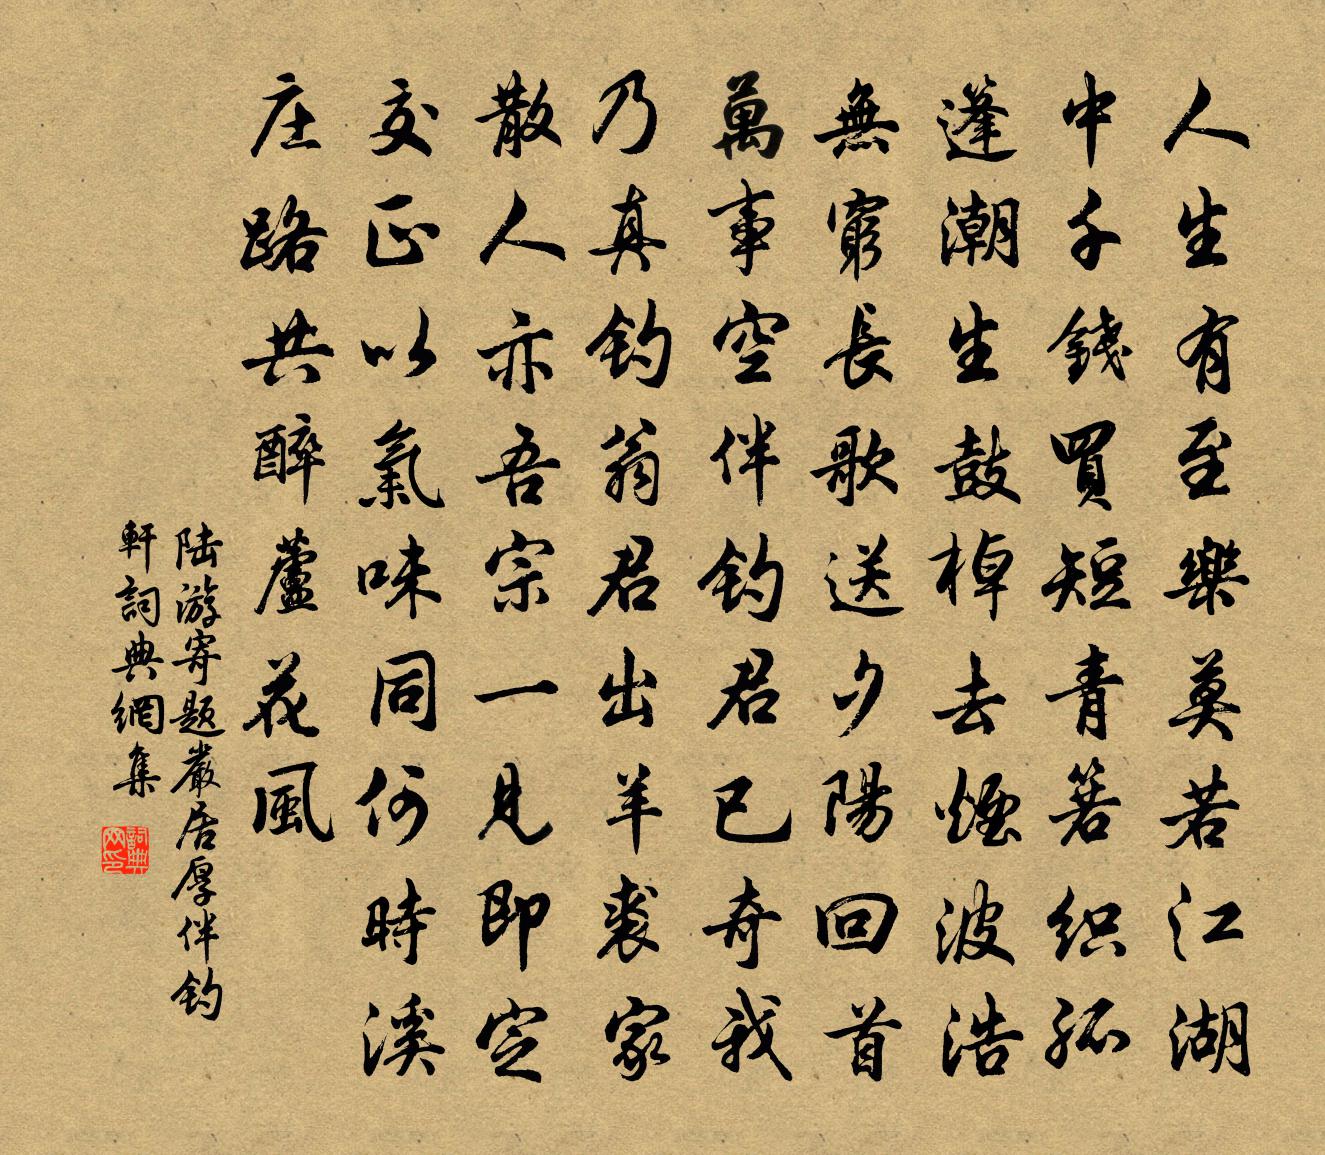 人生有至樂莫若江湖
中千錢買短青箬织孤
蓬潮生鼓棹去煙波浩
無窮長歌送夕陽回首
萬事空伴釣君已奇我
乃真釣翁君出羊裘家
散人亦吾宗一見即定
交正以氣味同何時溪
庄路共醉蘆花風
陆游寄题嚴居厚伴釣
軒詞典網集
詞典
网印